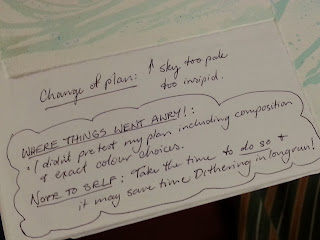 Change of plan: ↑ sky too pale
too insipid.
WHERE THINGS WENT AWRY!:
• I didn't pretest my plan including composition
& exact colour choices.
NOTE TO SELF: Take the time to do so +
it may save time Dithering in longrun!